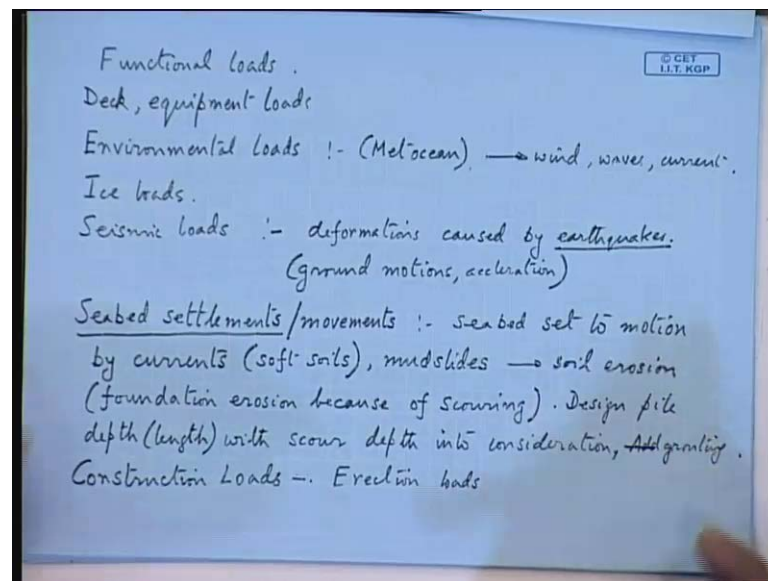 Functional loads.
© CET
I.I.T. KGP
Deck, equipment loads
Environmental loads :- (Metocean) → wind, waves, current.
Ice loads.
Seismic loads :- deformations caused by earthquakes.
(ground motions, accleration)
Seabed settlements/movements :- seabed set to motion
by currents (soft soils), mudslides → soil erosion
(foundation erosion because of scouring). Design pile
depth (length) with scour depth into consideration, Add grouting.
Construction Loads -. Erection loads